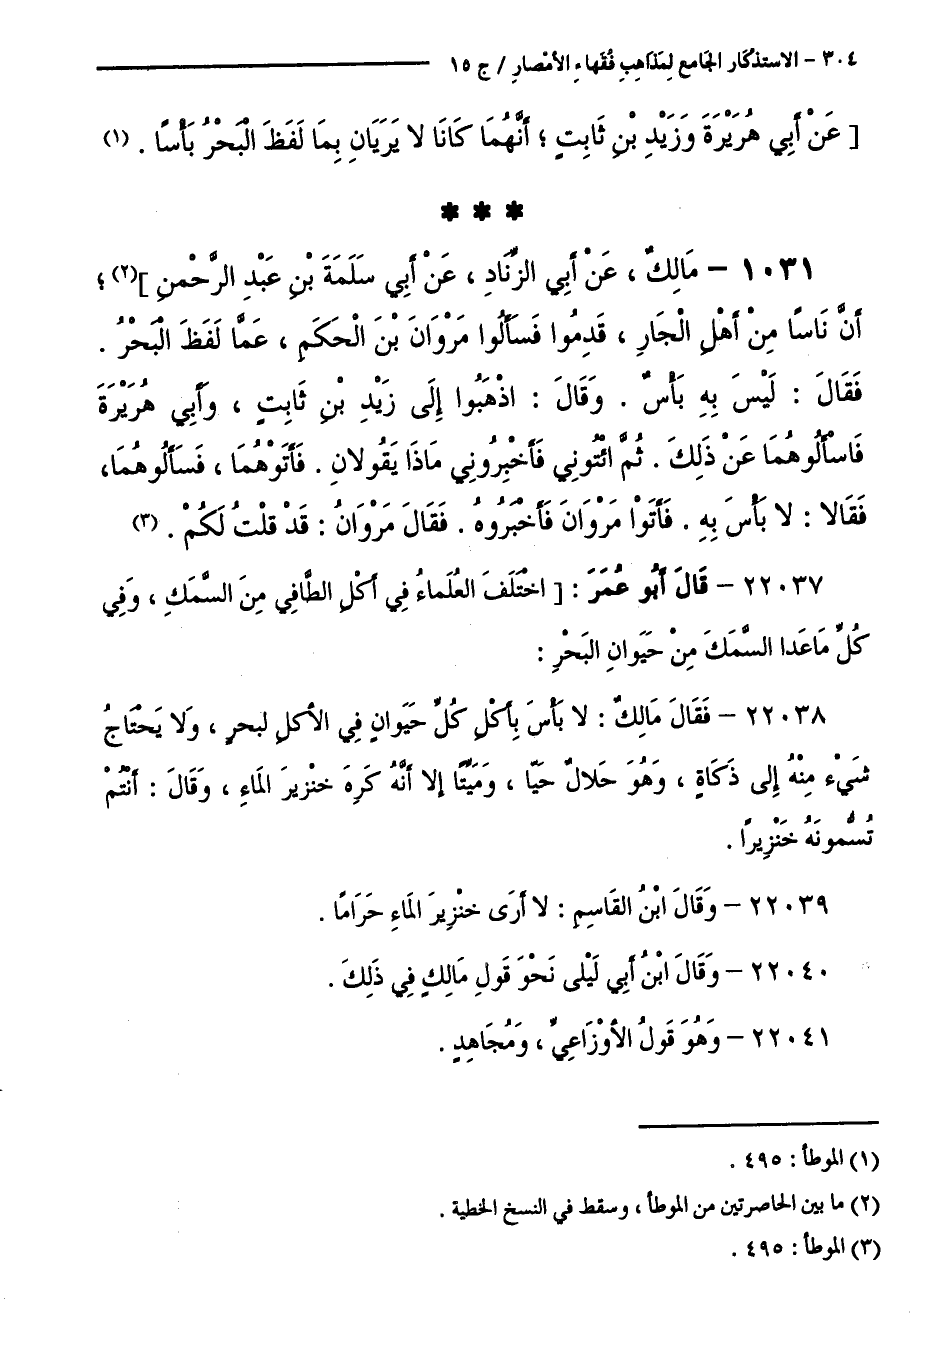 ٣٠٤ - الاستذكار الجامع لمذاهب فقهاء الأمصار / ج ١٥
[ عَنْ أَبِي هُرَيْرَةَ وَزَيْدِ بْنِ ثَابِتٍ ؛ أَنَّهُمَا كَانَا لا يَرَيَانِ بِمَا لَفَظَ الْبَحْرُ بَأْسًا . (١)
* * *
١٠٣١ – مَالِكٌ ، عَنْ أَبِي الزِّنَادِ ، عَنْ أَبِي سَلَمَةَ بْنِ عَبْدِ الرَّحْمنِ ](٢) ؛
أَنَّ نَاسًا مِنْ أَهْلِ الْجَارِ ، قَدِمُوا فَسَأَلُوا مَرْوَانَ بْنَ الْحَكَمِ ، عَمَّا لَفَظَ الْبَحْرُ .
فَقَالَ : لَيْسَ بِهِ بَأْسٌ . وَقَالَ : اذْهَبُوا إِلَى زَيْدِ بْنِ ثَابِتٍ ، وَأَبِي هُرَيْرَةَ
فَاسْأَلُوهُمَا عَنْ ذَلِكَ . ثُمَّ ائْتُونِي فَأَخْبِرُونِي مَاذَا يَقُولانِ . فَأَتَوْهُمَا ، فَسَأَلُوهُمَا،
فَقَالا : لا بَأْسَ بِهِ . فَأَتَوْا مَرْوَانَ فَأَخْبَرُوهُ . فَقَالَ مَرْوَانُ : قَدْ قُلْتُ لَكُمْ . (٣)
٢٢٠٣٧ – قَالَ أَبُو عُمَرَ : [ اخْتَلَفَ العُلَماءُ فِي أَكْلِ الطَّافِي مِنَ السَّمَكِ ، وَفِي
كُلِّ مَاعَدا السَّمَكَ مِنْ حَيَوانِ البَحْرِ :
٢٢٠٣٨ – فَقَالَ مَالِكٌ : لا بَأْسَ بِأَكْلِ كُلِّ حَيَوانٍ فِي الأكلِ لبحرِ ، وَلا يَحْتَاجُ
شَيْء مِنْهُ إِلى ذَكَاةٍ ، وَهُوَ حَلالٌ حَيًّا ، وَمَيِّتًا إلا أَنَّهُ كَرِهَ خنْزيرَ المَاءِ ، وَقَالَ : أَنْتُمْ
تُسَمُّونَهُ خَنْزِيراً .
٢٢٠٣٩ – وَقَالَ ابْنُ القَاسِمِ : لا أَرَى خنْزِيرَ المَاءِ حَرَامًا .
٢٢٠٤٠ – وَقَالَ ابْنُ أَبِي لَيْلى نَحْوَ قَولِ مَالِكٍ فِي ذَلِكَ .
٢٢٠٤١ – وَهُوَ قَولُ الأوْزَاعِيِّ ، وَمُجَاهِدٍ .
(١) الموطأ : ٤٩٥ .
(٢) ما بين الحاصرتين من الموطأ ، وسقط في النسخ الخطية .
(٣) الموطأ : ٤٩٥ .